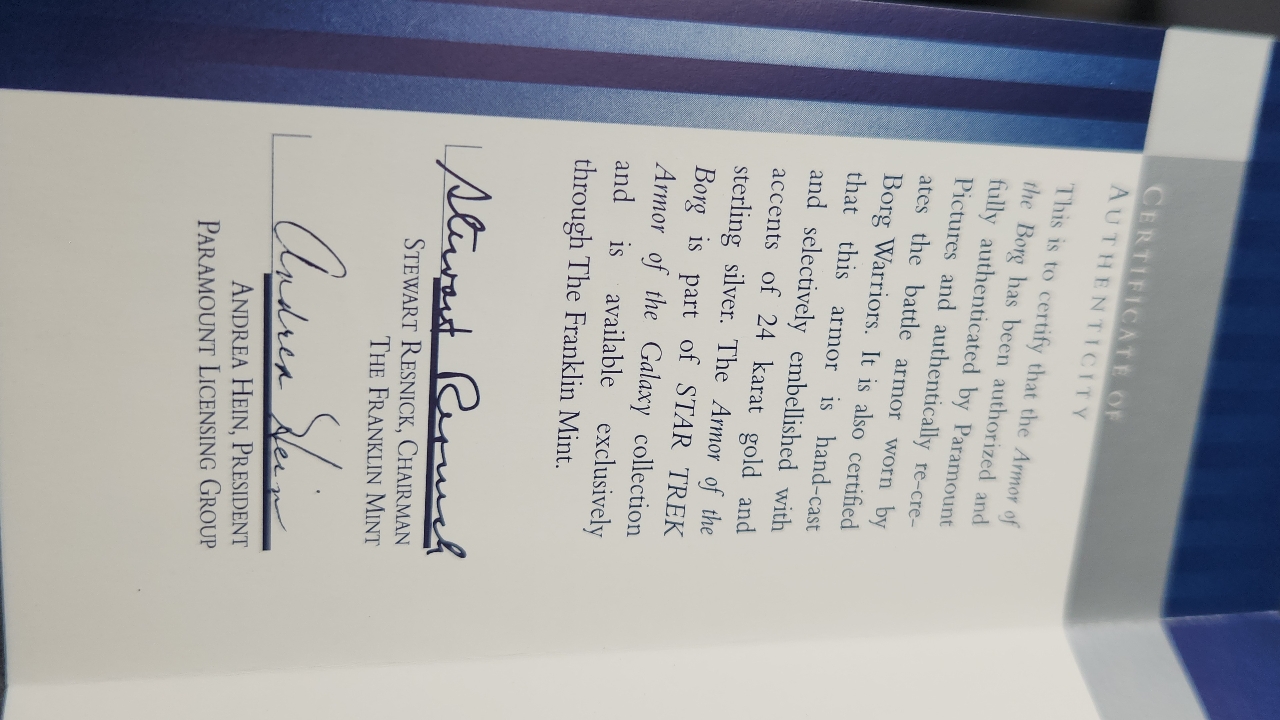 CERTIFICATE OF
AUTHENTICITY
This is to certify that the Armor of
the Borg has been authorized and
fully authenticated by Paramount
Pictures and authentically re-cre-
ates the battle armor worn by
Borg Warriors. It is also certified
that this armor is hand-cast
and selectively embellished with
accents of 24 karat gold and
sterling silver. The Armor of the
Borg is part of STAR TREK
Armor of the Galaxy collection
and is available exclusively
through The Franklin Mint.
Stewart Resnick
STEWART RESNICK, CHAIRMAN
THE FRANKLIN MINT
Andrea Hein
ANDREA HEIN, PRESIDENT
PARAMOUNT LICENSING GROUP